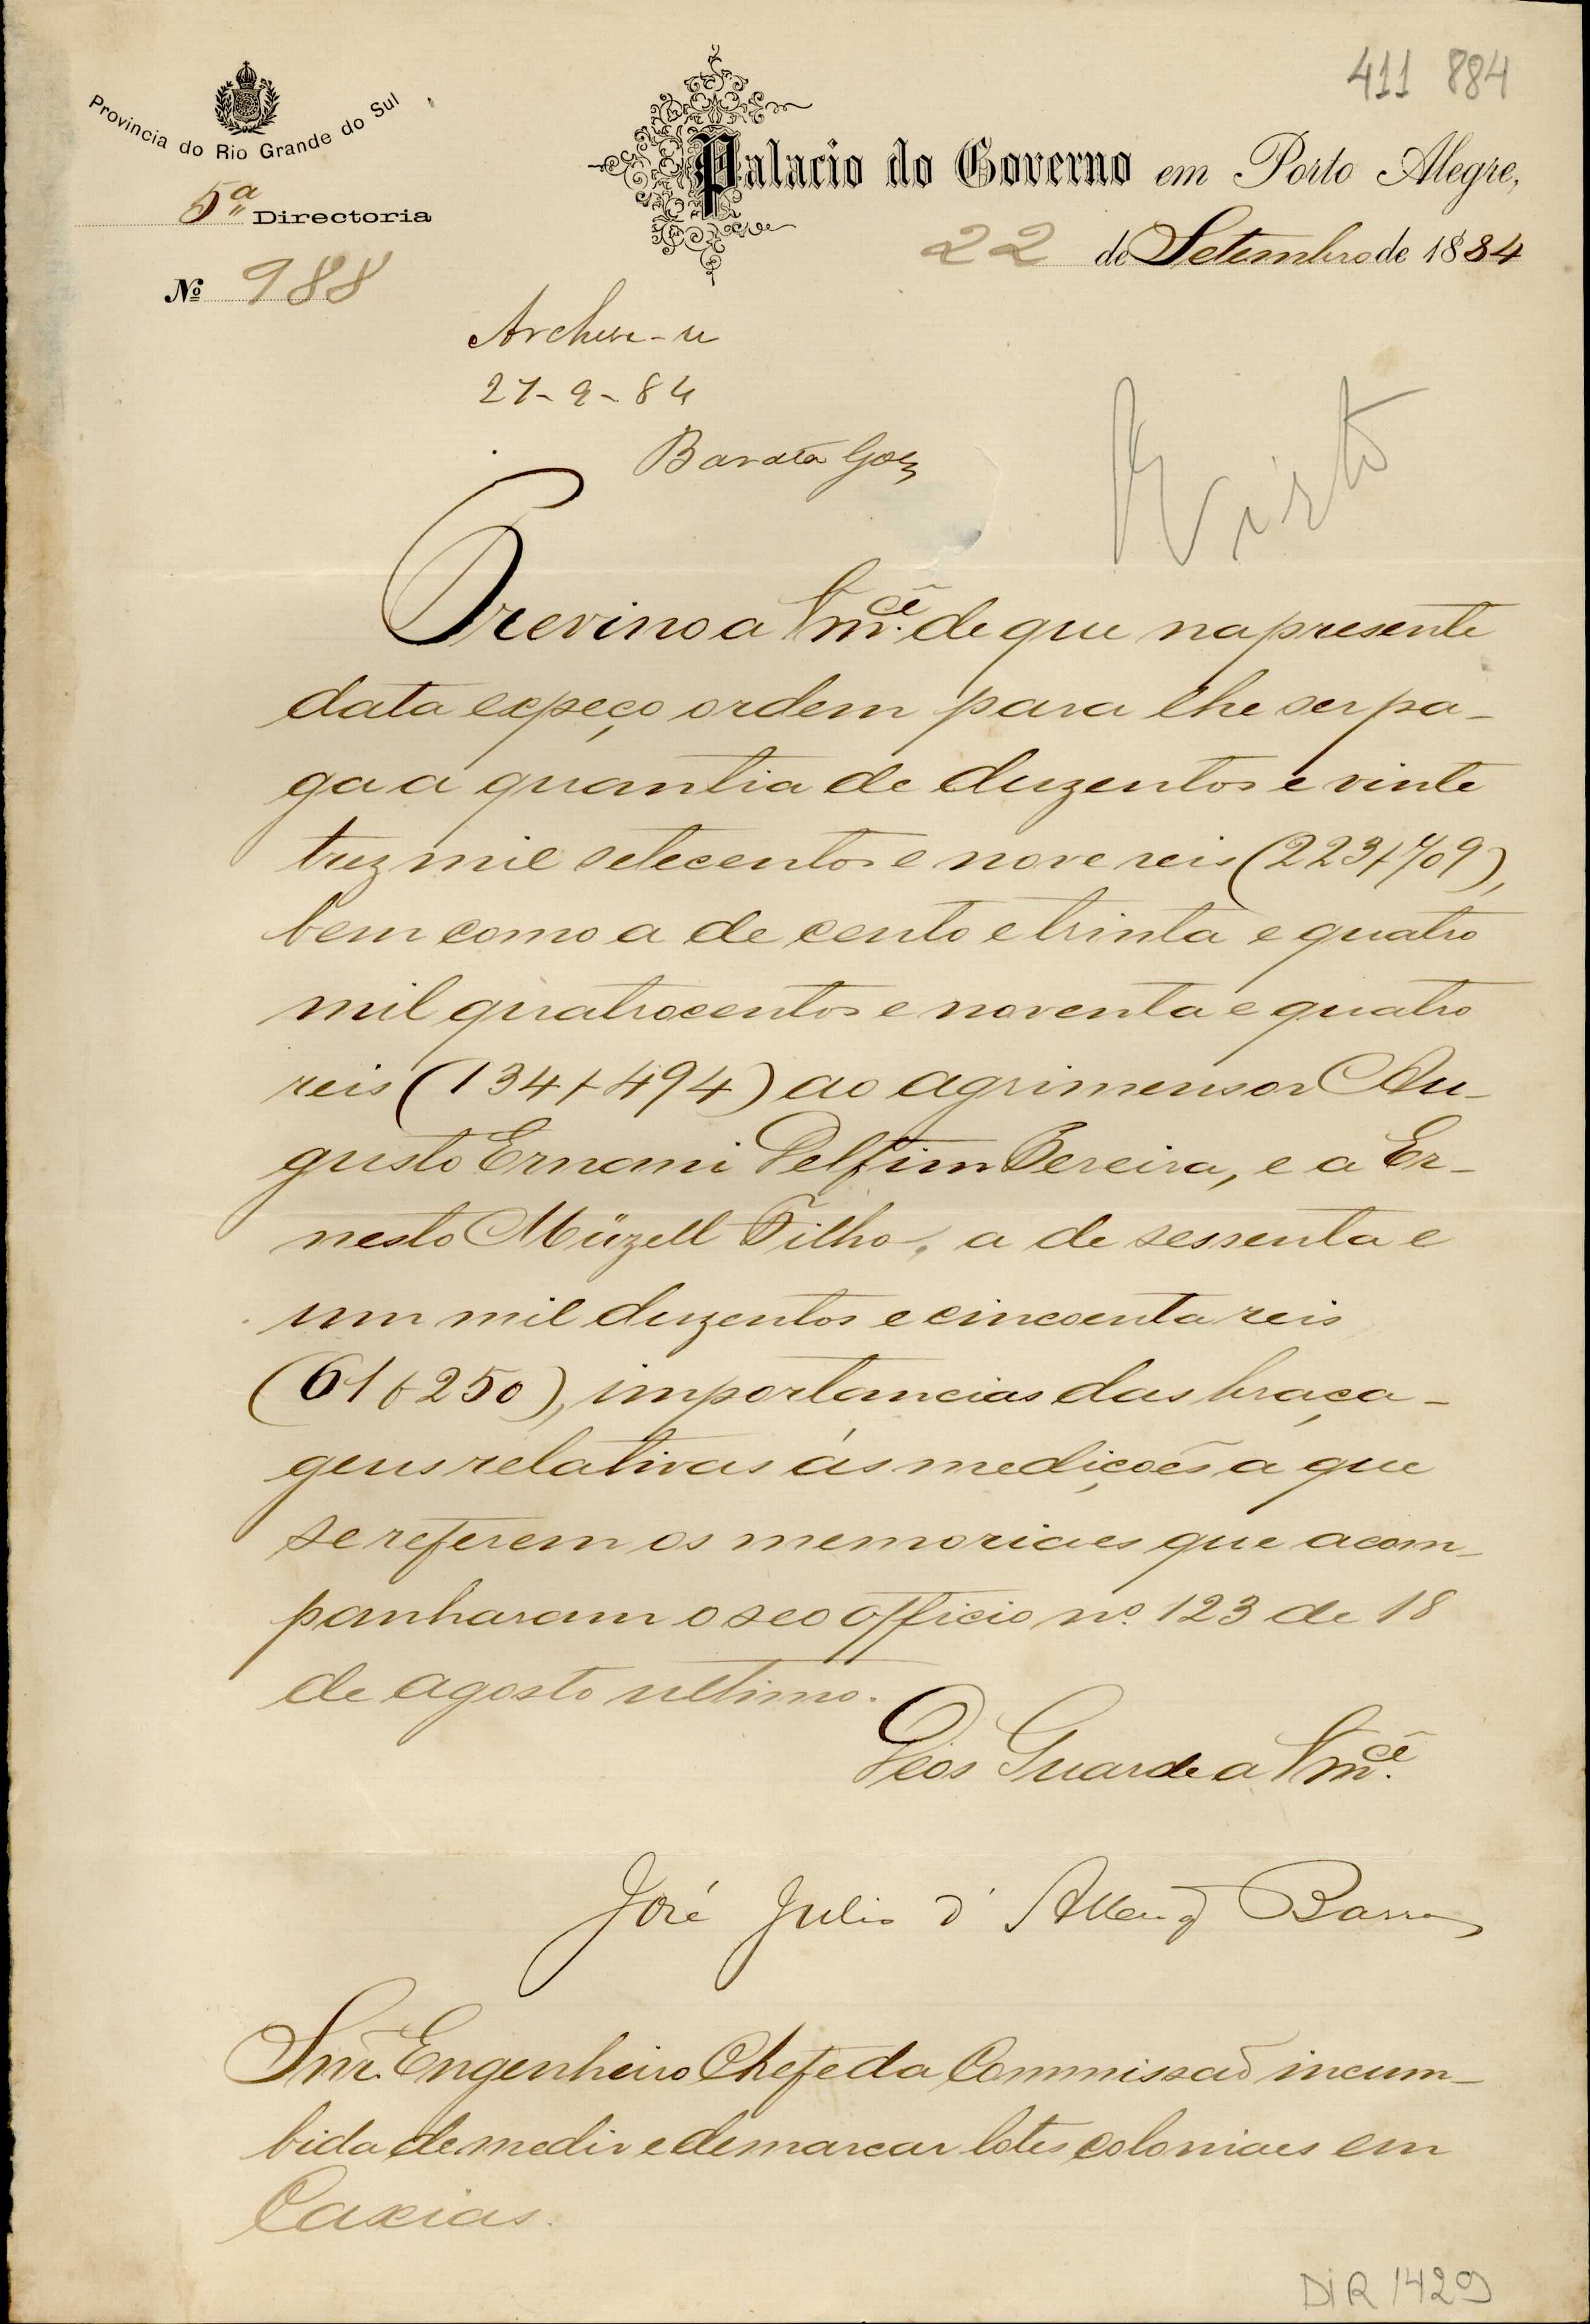 411 884
Provincia do Rio Grande do Sul
Palacio do Governo em Porto Alegre,
5ª Directoria
22 de Setembro de 1884
Nº 988
Archive-se
27-9-84
Barata Goes
Visto
Previno a Vm.cê de que na presente
data expeço ordem para lhe ser pa-
ga a quantia de duzentos e vinte
trez mil setecentos e nove reis (223$709),
bem como a de cento e trinta e quatro
mil quatrocentos e noventa e quatro
reis (134$494) ao agrimensor Au-
gusto Ernani Delfim Pereira, e a Er-
nesto Müzell Filho, a de sessenta e
um mil duzentos e cincoenta reis
(61$250), importancias das braça-
gens relativas ás medições a que
se referem os memoriaes que acom-
panharam o seo officio nº 123 de 18
de agosto ultimo.
Deos Guarde a Vm.cê
José Julio d' Albuqe Barros
Snr. Engenheiro Chefe da Commissão incum-
bida de medir e demarcar lotes coloniaes em
Caxias.
DIR 1429